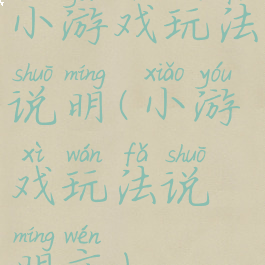 小游戏玩法
shuō míng xiǎo yóu
说明(小游
xì wán fǎ shuō
戏玩法说
míng wén